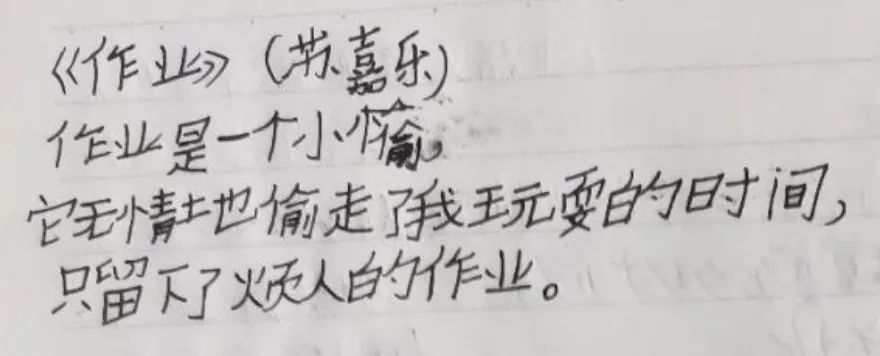 《作业》(苏嘉乐)
作业是一个小偷,
它无情地偷走了我玩耍的时间,
只留下了烦人的作业。